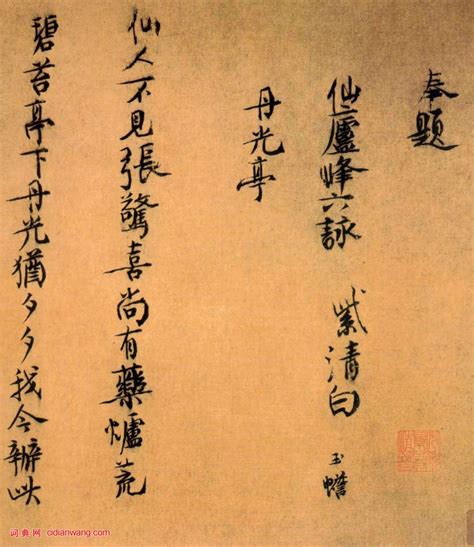 奉題
仙廬峰六詠 紫清白玉蟾
丹光亭
仙人不見張驚喜尚有藥爐荒
碧苔亭下丹光猶夕夕我今辦此
词典网 cidianwang.com